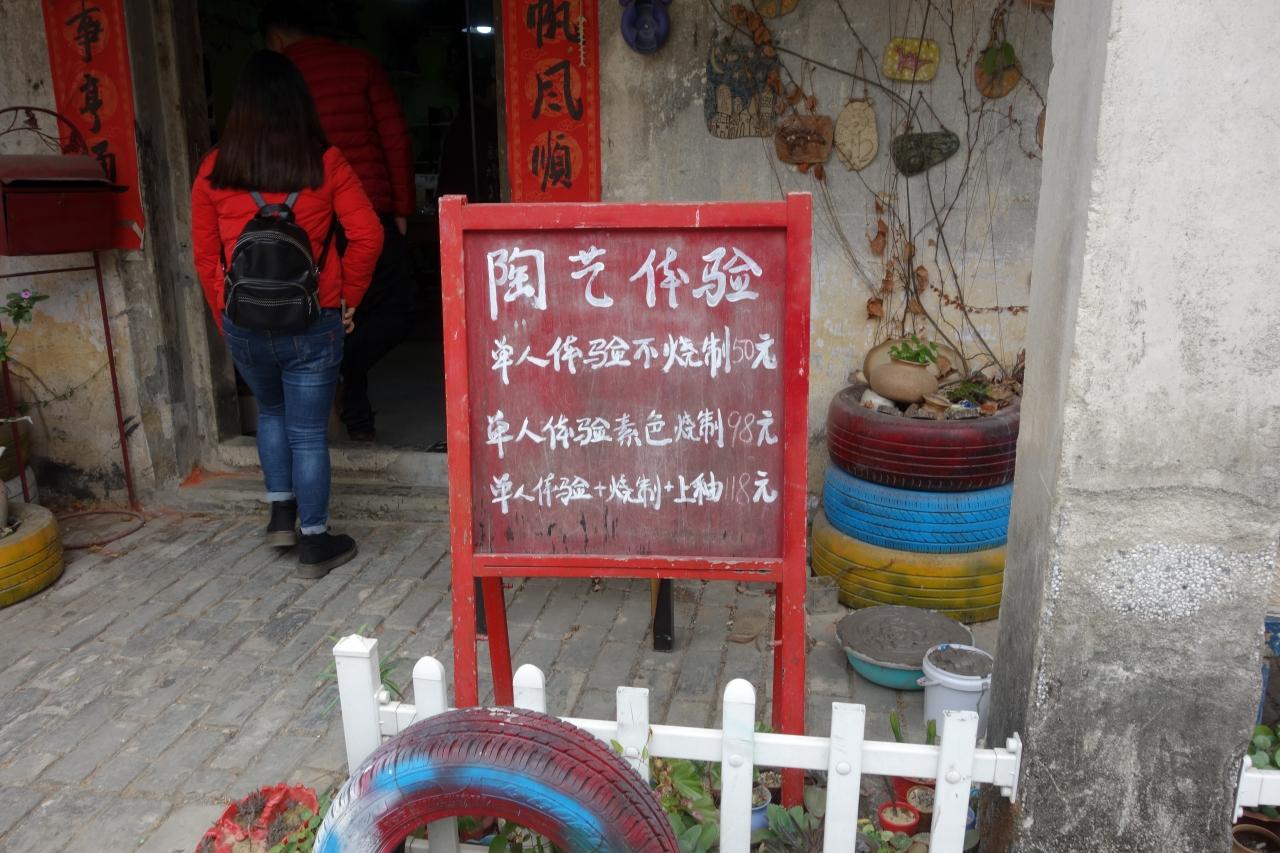 事事亨
帆风顺
陶艺体验
单人体验不烧制50元
单人体验素色烧制98元
单人体验+烧制+上釉118元